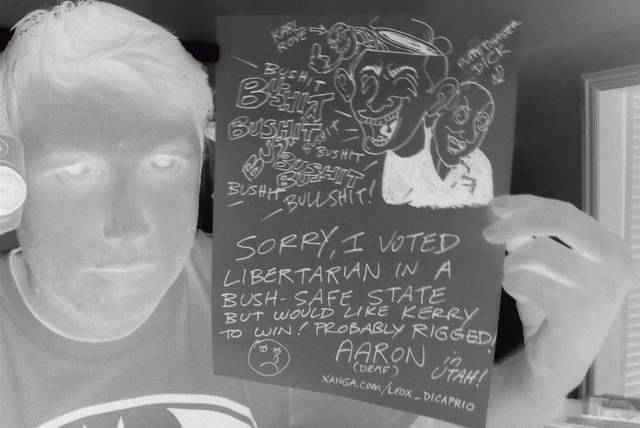 KARL
ROVE
PUPPETMASTER
DICK
BUSHIT
BUSHIT
BUSHIT
BUSHIT
BUSHIT
BUSHIT
BUSHIT
BUSHIT
BULLSHIT!
SORRY, I VOTED
LIBERTARIAN IN A
BUSH-SAFE STATE
BUT WOULD LIKE KERRY
TO WIN! PROBABLY RIGGED!
AARON
(DEAF)
in
UTAH!
XANGA.COM/LEOX_DICAPRIO